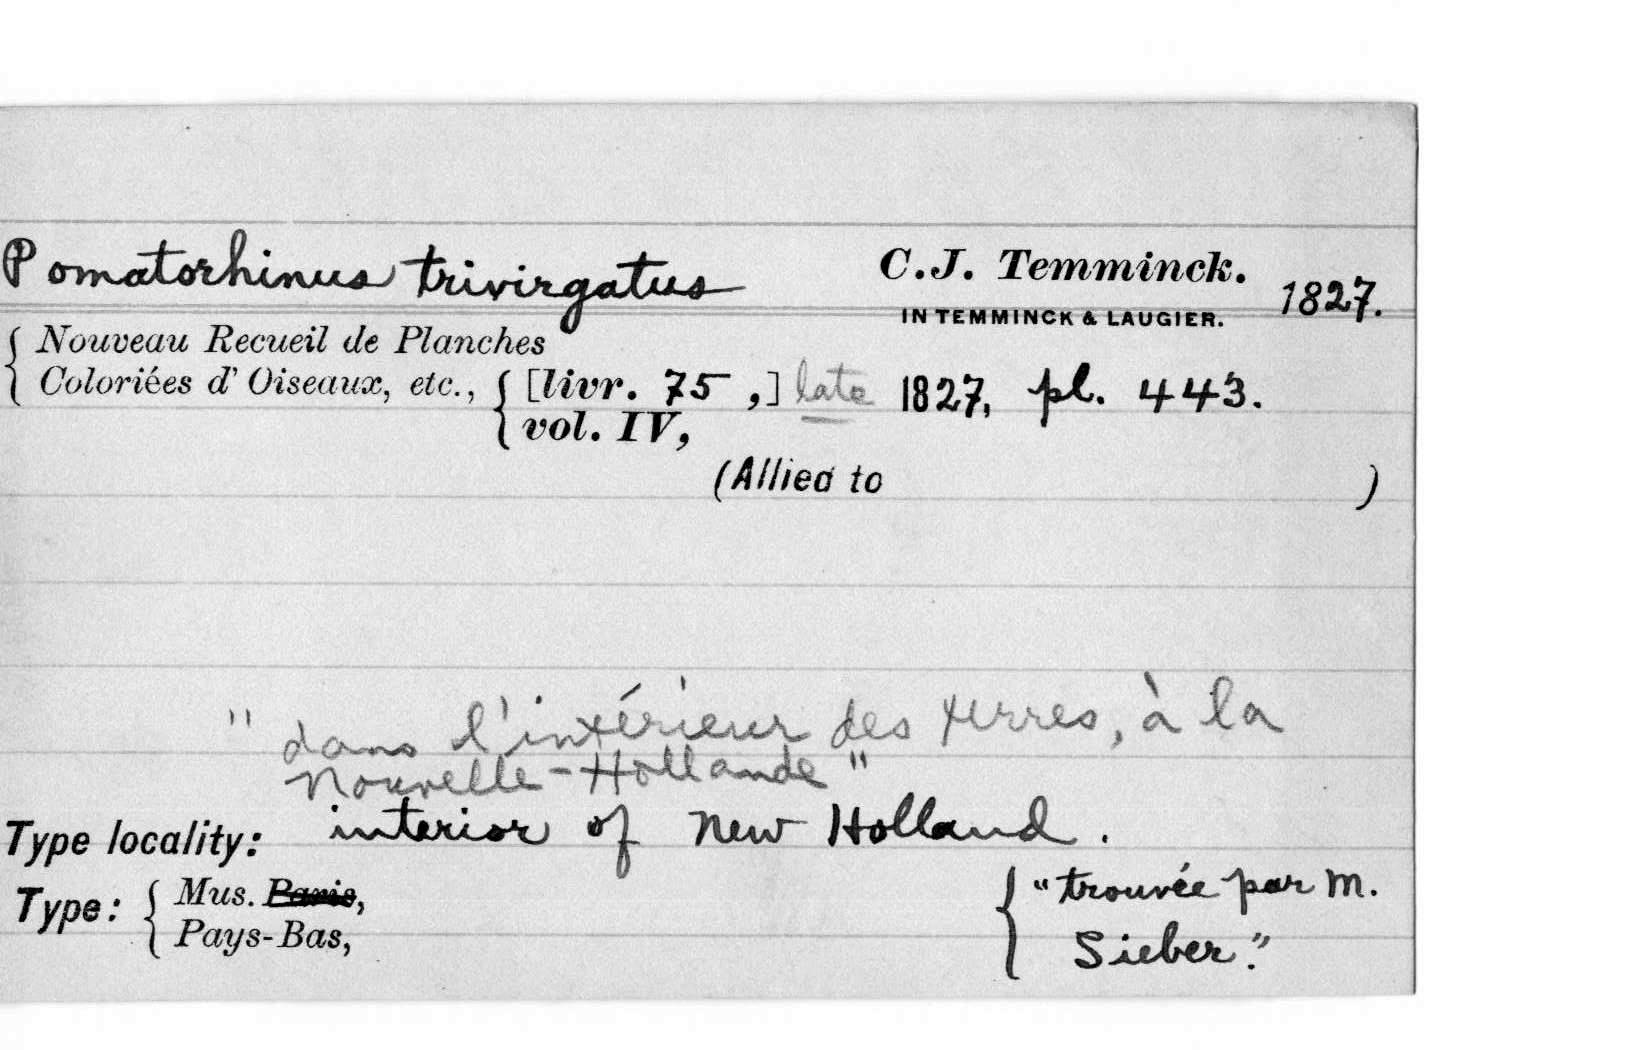 Pomatorhinus trivirgatus C.J. Temminck. 1827.
IN TEMMINCK & LAUGIER.
{ Nouveau Recueil de Planches
Coloriées d'Oiseaux, etc., { [livr. 75 ,] late 1827, pl. 443.
vol. IV,
(Allied to )
"dans l'intérieur des terres, à la
Nouvelle-Hollande"
Type locality: interior of New Holland.
Type: { Mus. Paris, { "trouvée par M.
Pays-Bas, Sieber."